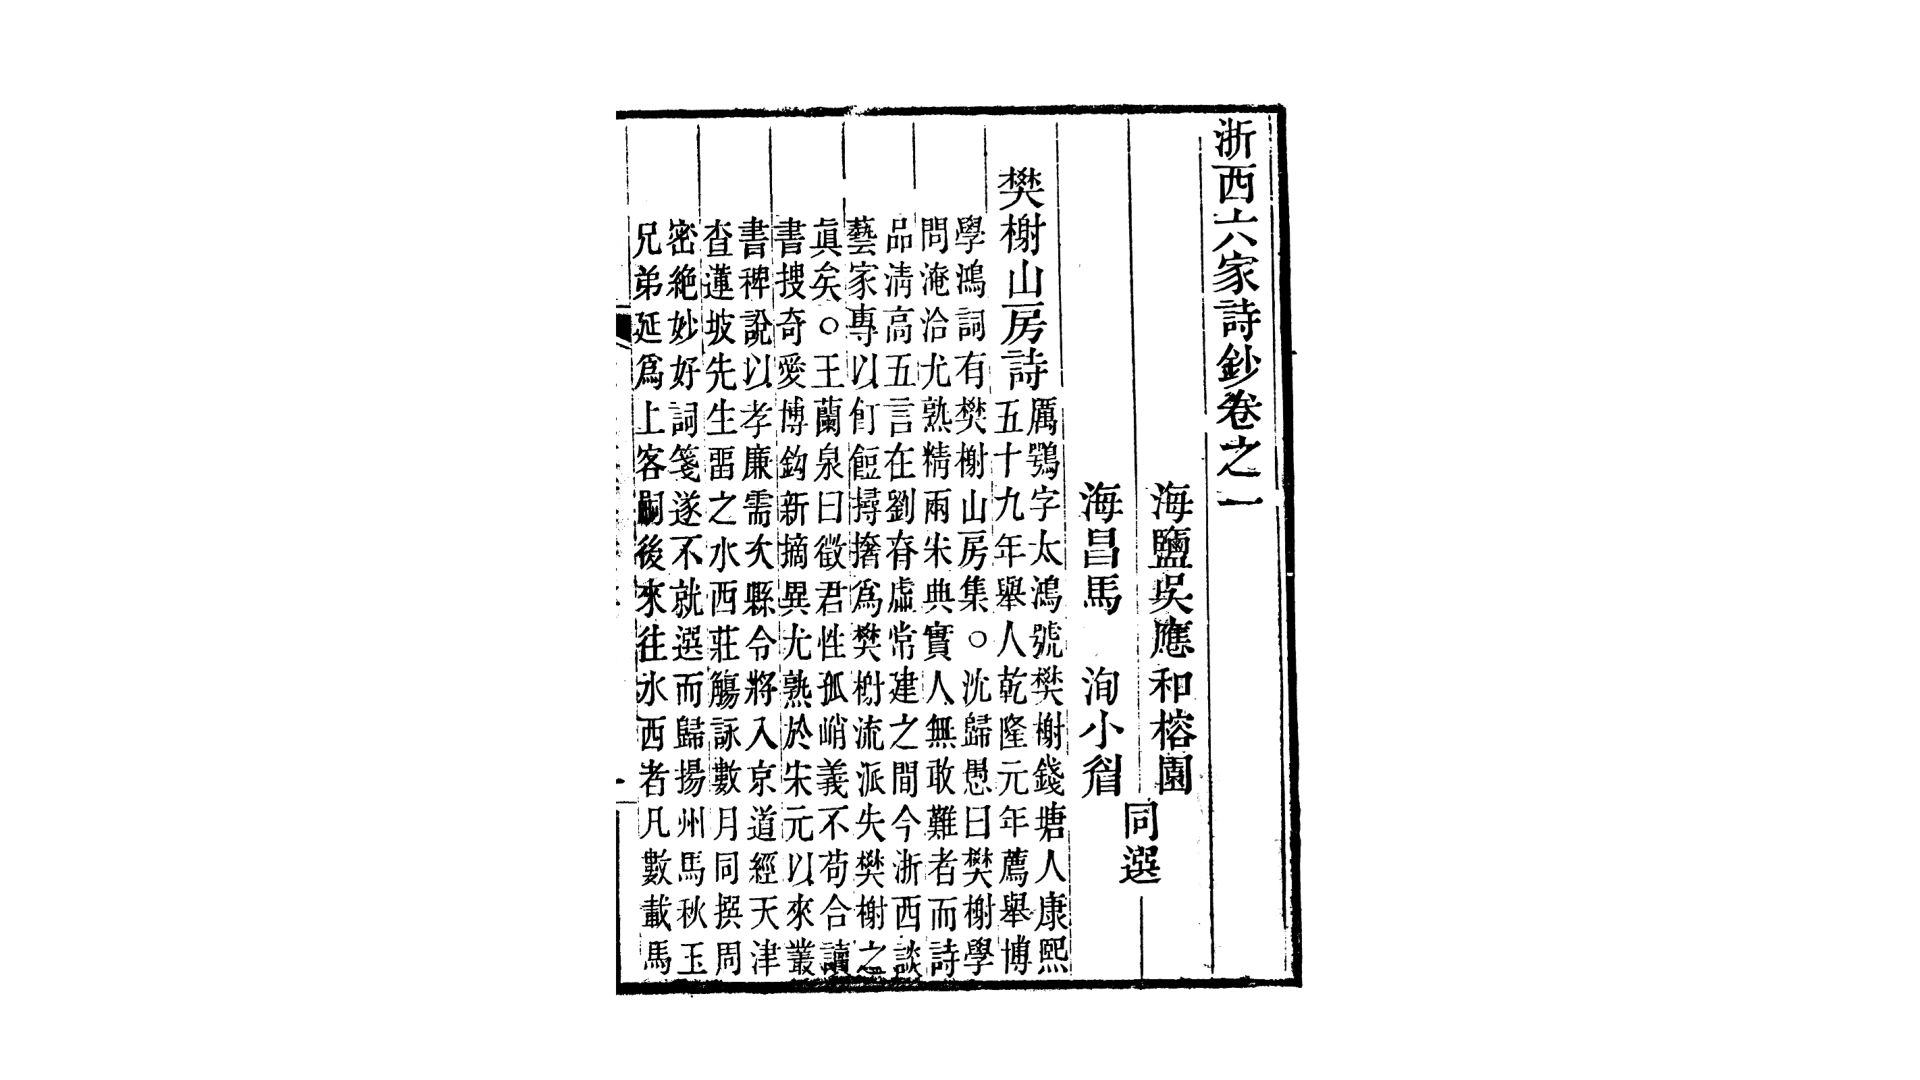 浙西六家詩鈔卷之一
海鹽吳應和榕園
海昌馬 洵小眉
同選
樊榭山房詩
厲鶚字太鴻號樊榭錢塘人康熙
五十九年舉人乾隆元年薦舉博
學鴻詞有樊榭山房集○沈歸愚曰樊榭學
問淹洽尤熟精兩宋典實人無敢難者而詩
品清高五言在劉眘虛常建之間今浙西談
藝家專以飣餖撏撦爲樊榭流派失樊榭之
眞矣○王蘭泉曰徵君性孤峭義不苟合讀
書搜奇愛博鈎新摘異尤熟於宋元以來叢
書稗說以孝廉需次縣令將入京道經天津
查蓮坡先生畱之水西莊觴詠數月同撰周
密絶妙好詞箋遂不就選而歸揚州馬秋玉
兄弟延爲上客嗣後來往水西者凡數載馬